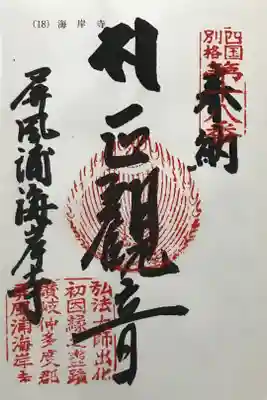 (18) 海岸寺
四国
別格
第十八番
奉納
正觀音
屏風浦海岸寺
弘法大師出化
初因縁之霊跡
讃岐仲多度郡
屏風浦海岸寺